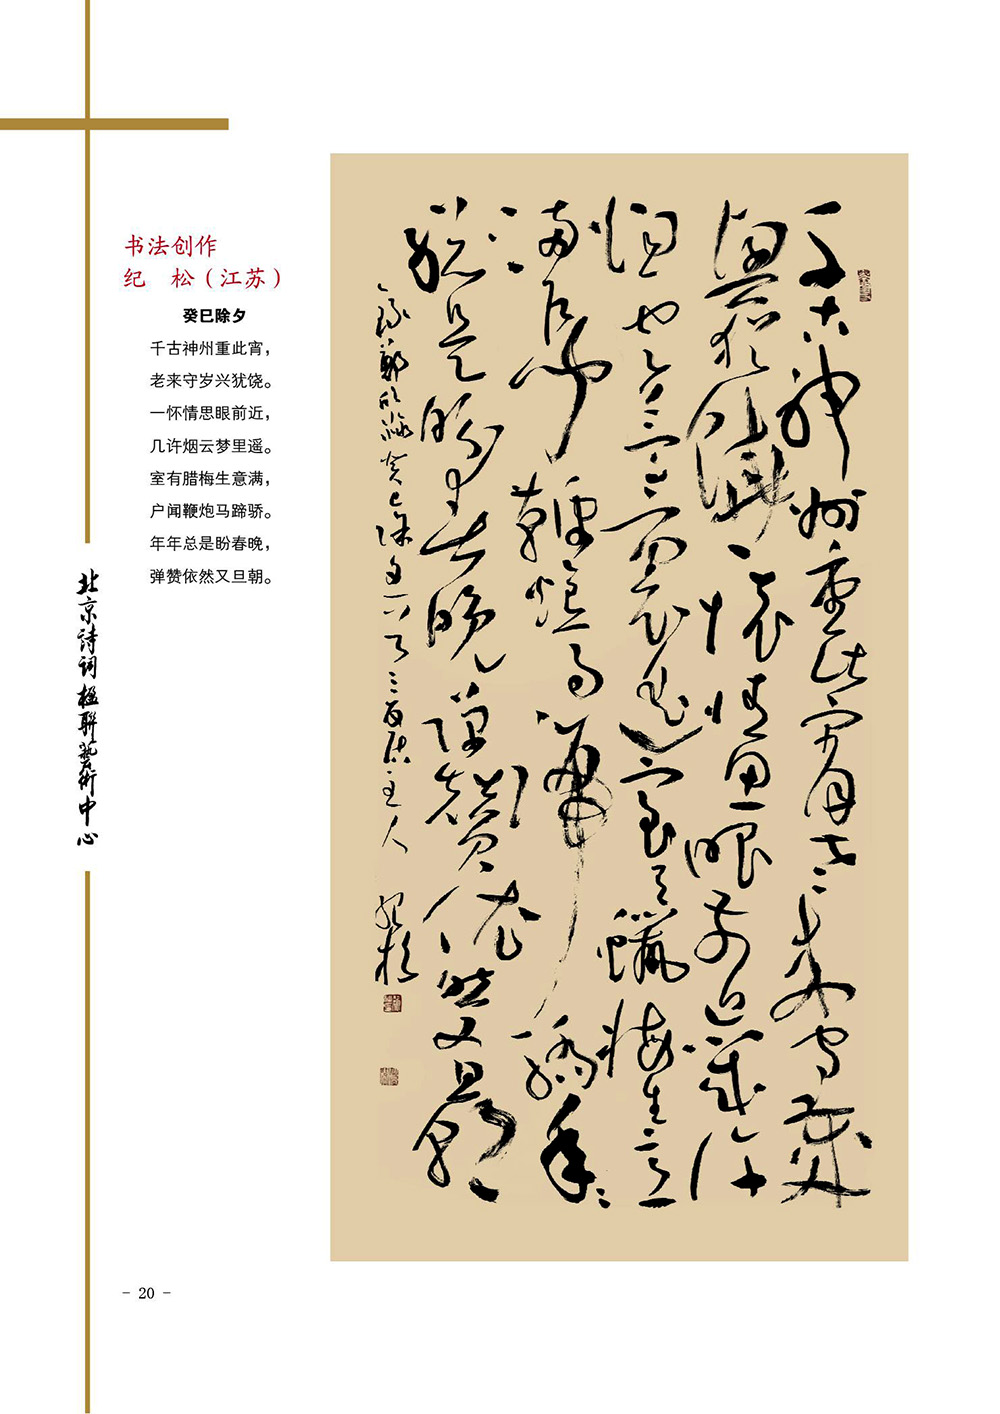 书法创作
纪 松（江苏）
癸巳除夕
千古神州重此宵，
老来守岁兴犹饶。
一怀情思眼前近，
几许烟云梦里遥。
室有腊梅生意满，
户闻鞭炮马蹄骄。
年年总是盼春晚，
弹赞依然又旦朝。
北京詩词楹聯藝術中心
千古神州重此宵老来守歲
興犹饶一懷情思眼前近几许
烟云梦里遥室有蠟梅生意
满户闻鞭炮马蹄骄年年
總是盼春晚弹赞依然又旦朝
录鄭欣淼癸巳除夕一首三友居主人
纪松
- 20 -